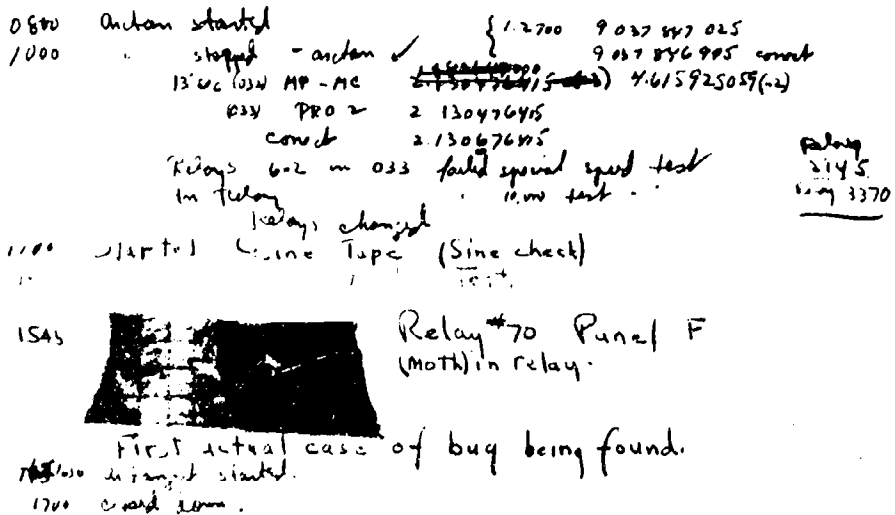 0800 antan started { 1.2700 9 037 847 025
1000 " stopped - antan ✓ 9 037 846 995 correct
13" MP - MC 4.615925059(-2)
(033) PRO 2 2 130476415
correct 2.130676415
Relays 6-2 in 033 failed special speed test
in relay " 10.000 test
Relay
2145
Relay 3370
Relays changed
1100 Started Cosine Tape (Sine check)
1545 Relay #70 Panel F
(moth) in relay.
First actual case of bug being found.
antangent started.
1700 closed down.